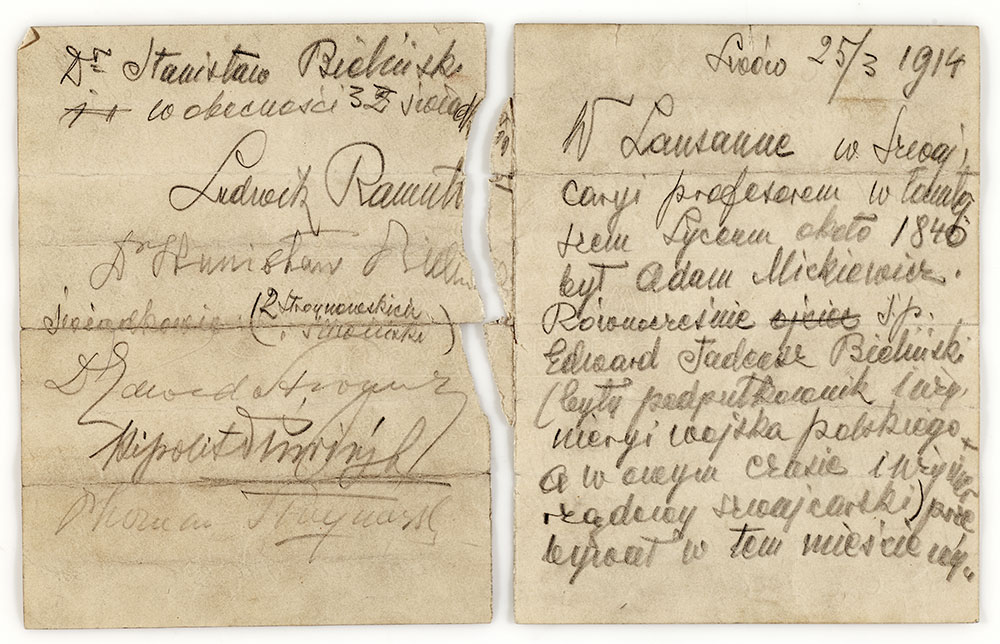 Dr Stanisław Bieliński
w obecności 3
Ludwik Ramułt
Dr Stanisław
Świadkowie (2 Stroynowskich
i Śliwiński)
Dr Edward
Hipolit Śliwiński
Lwów 25/3 1914
W Lausanne w Szwaj,
caryi profesorem w tamtej
szem Lyceum około 1840
był Adam Mickiewicz.
Równocześnie ojciec ś/p.
Edward Tadeusz Bieliński
(były podpułkownik inży,
nieryi wojska polskiego
a w owym czasie inżynier
rządowy szwajcarski) prze
bywał w tem mieście